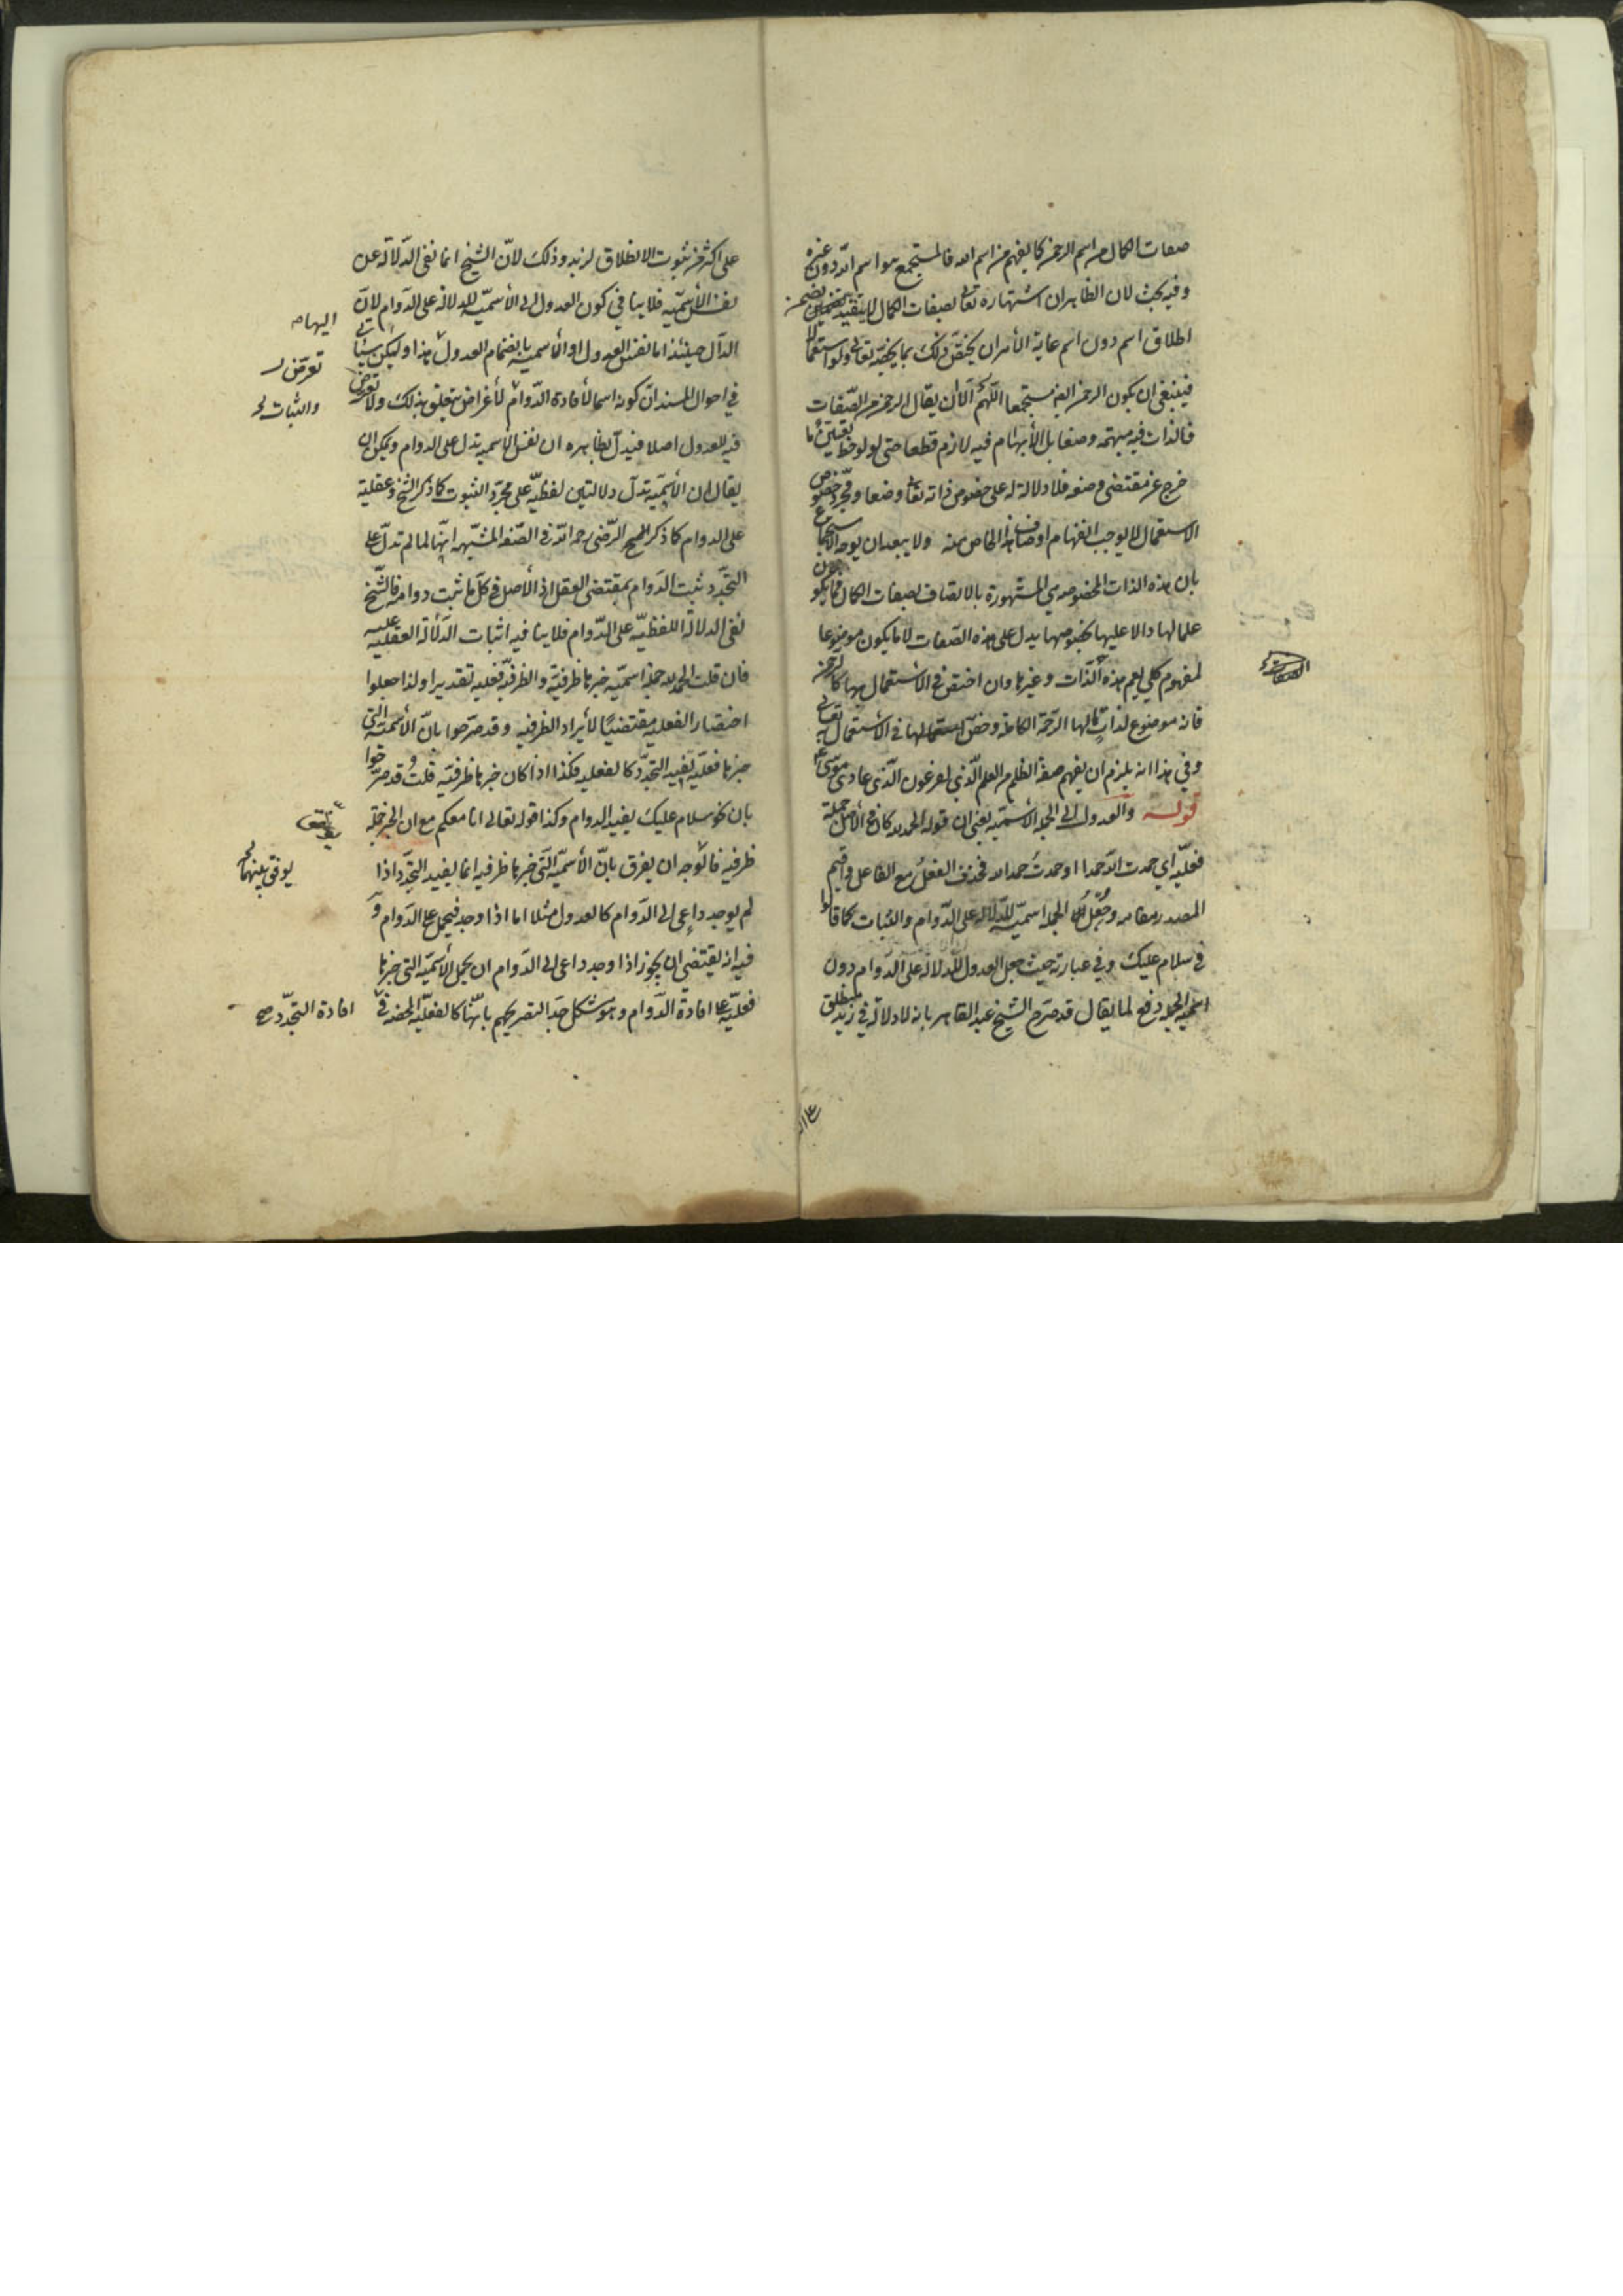 صفات الكمال من اسم الرحمن كما يفهم من اسم الله فالمستجمع هو اسم الله دون غيره
وفيه بحث لان الظاهر ان اشتهاره تعالى بصفات الكمال لا يتقيد
اطلاق اسم دون اسم غاية الأمر ان يختص ذلك بما يخصه تعالى ولو استعمالا
فينبغي ان يكون الرحمن ايضا مستجمعا اللهم الا ان يقال الرحمن من الصفات
فالذات فيه مبهمة وضعا بل الأبهام فيه لازم قطعا حتى لو لوحظ تعيين ما
خرج عن مقتضى وضعه فلا دلالة له على خصوص ذاته تعالى وضعا ومجرد خصوص
الاستعمال لا يوجب انفهام اوصاف هذا الخاص منه ولا يبعد ان يوجه الاستجماع
بان هذه الذات المخصوصة هي المشهورة بالاتصاف بصفات الكمال فما يكون
علما لها دالا عليها بخصوصها يدل على هذه الصفات لا ما يكون موضوعا
لمفهوم كلي يعم هذه الذات وغيرها وان اختص في الاستعمال بها كالرحمن
فانه موضوع لذات لها الرحمة الكاملة وخص استعمالها في الأستعمال به تعالى
وفي هذا انه يلزم ان يفهم صفة الظلم من العلم الذي لفرعون الذي عادى موسى
قوله والعدول الى الجملة الأسمية يعني ان قوله الحمد لله كان في الأصل جملة
فعلية اي حمدت الله حمدا او حمدت حمدا لله فحذف الفعل مع الفاعل واقيم
المصدر مقامه وجعل الجملة اسمية للدلالة على الدوام والثبات كما قالوا
في سلام عليك وفي عبارته حيث جعل العدول للدلالة على الدوام دون
اسمية الجملة دفع لما يقال قد صرح الشيخ عبد القاهر بانه لا دلالة في زيد منطلق
على اكثر من ثبوت الانطلاق لزيد وذلك لان الشيخ انما نفى الدلالة عن
نفس الأسمية فلا ينافي كون العدول الى الأسمية للدلالة على الدوام لان
الدال حينئذ اما نفس العدول او الأسمية بانضمام العدول هذا ولكن سيأتي
اليها
في احوال المسند ان كونه اسما لأفادة الدوام لأغراض تتعلق بذلك ولا تعرض
تعرض
والثبات
فيه للعدول اصلا فيدل بظاهره ان نفس الاسمية تدل على الدوام ويمكن ان
يقال ان الأسمية تدل دلالتين لفظية على مجرد الثبوت كما ذكر الشيخ وعقلية
على الدوام كما ذكر الرضي رحمه الله في الصفة المشبهة انها لما لم تدل على
التجدد ثبت الدوام بمقتضى العقل اذ الأصل في كل ما ثبت دوامه فالشيخ
نفى الدلالة اللفظية على الدوام فلا ينافيه اثبات الدلالة العقلية عليه
فان قلت الحمد لله جملة اسمية خبرها ظرفية والظرفية فعلية تقديرا ولذا جعلوا
اختصار الفعلية مقتضيا لأيراد الظرفية وقد صرحوا بان الأسمية التي
خبرها فعلية تفيد التجدد كالفعلية فكذا اذا كان خبرها ظرفية قلت وقد صرحوا
بان نحو سلام عليك يفيد الدوام وكذا قوله تعالى انا معكم مع ان الخبر جملة
ظرفية فالوجه ان يفرق بان الأسمية التي خبرها ظرفية انما يفيد التجدد اذا
يوفق بينهما
لم يوجد داعي الى الدوام كالعدول مثلا اما اذا وجد فيحمل على الدوام و
فيه انه يقتضي ان يجوز اذا وجد داعي الى الدوام ان يحمل الأسمية التي خبرها
فعلية على افادة الدوام وهو مشكل جدا لتصريحهم بانها كالفعلية المحضة في
افادة التجدد صح